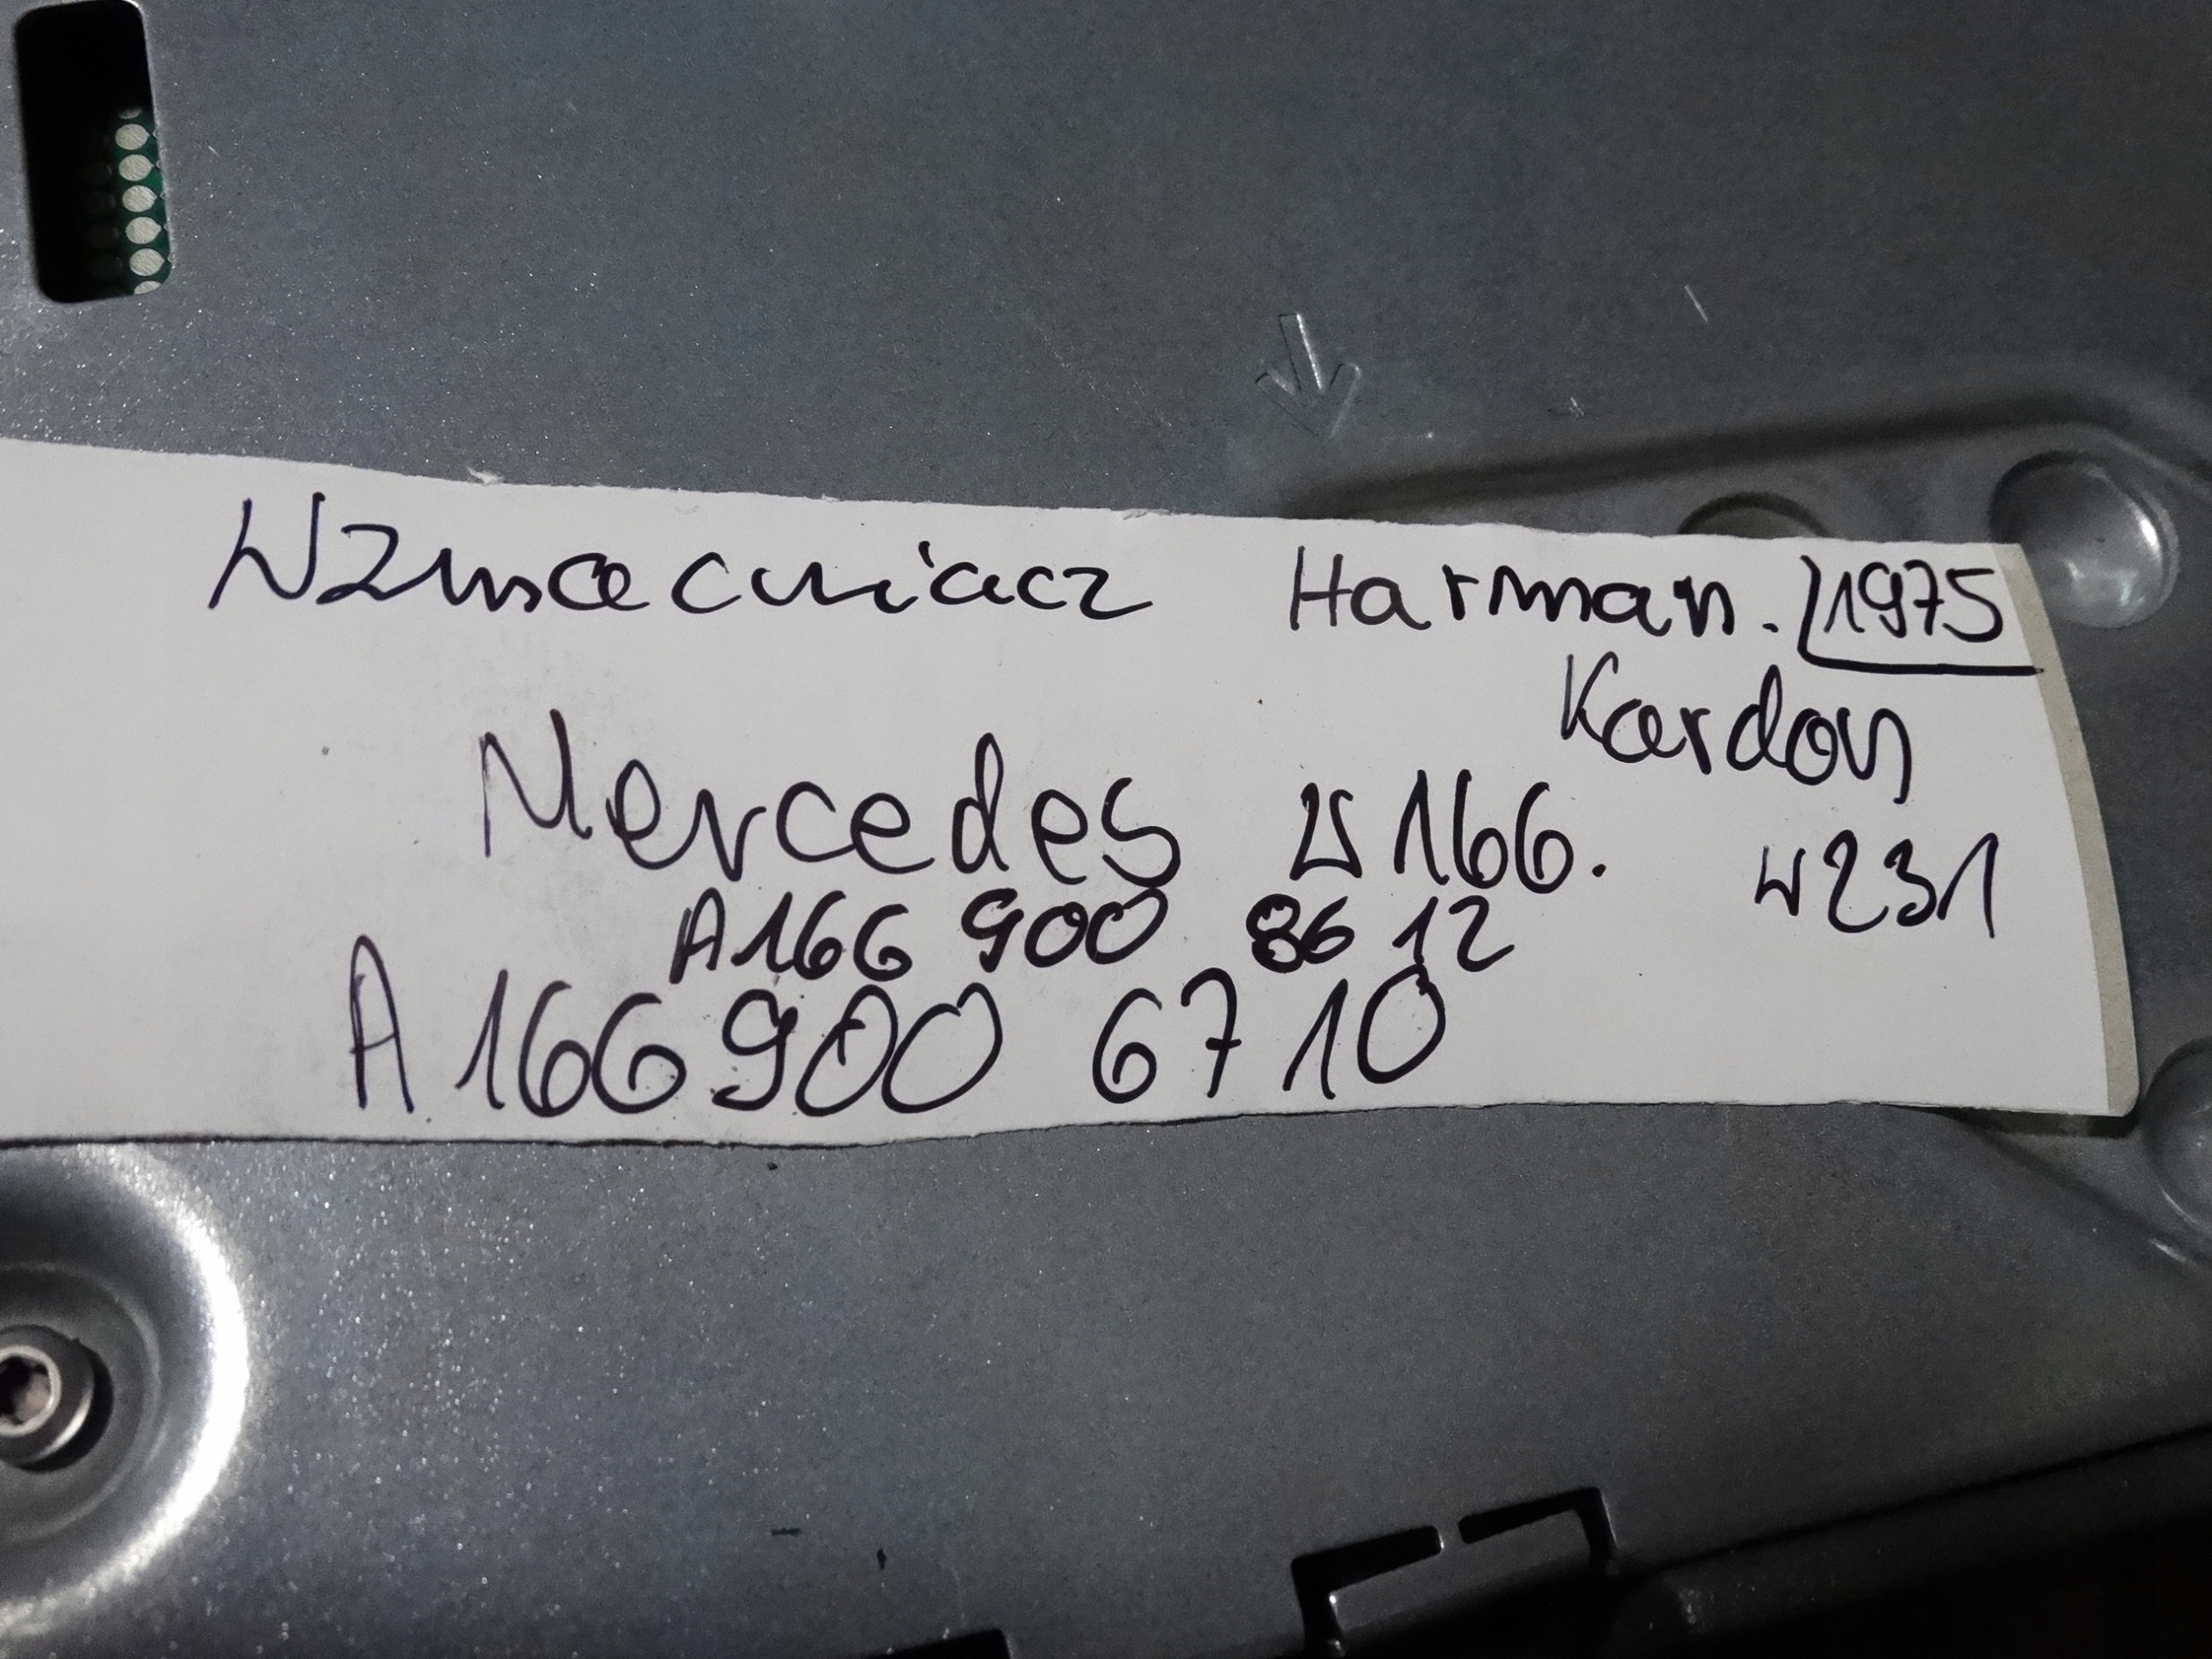 Wzmacniacz Harman. 1975
Kardon
Mercedes W166. W231
A166 900 8612
A166 900 6710